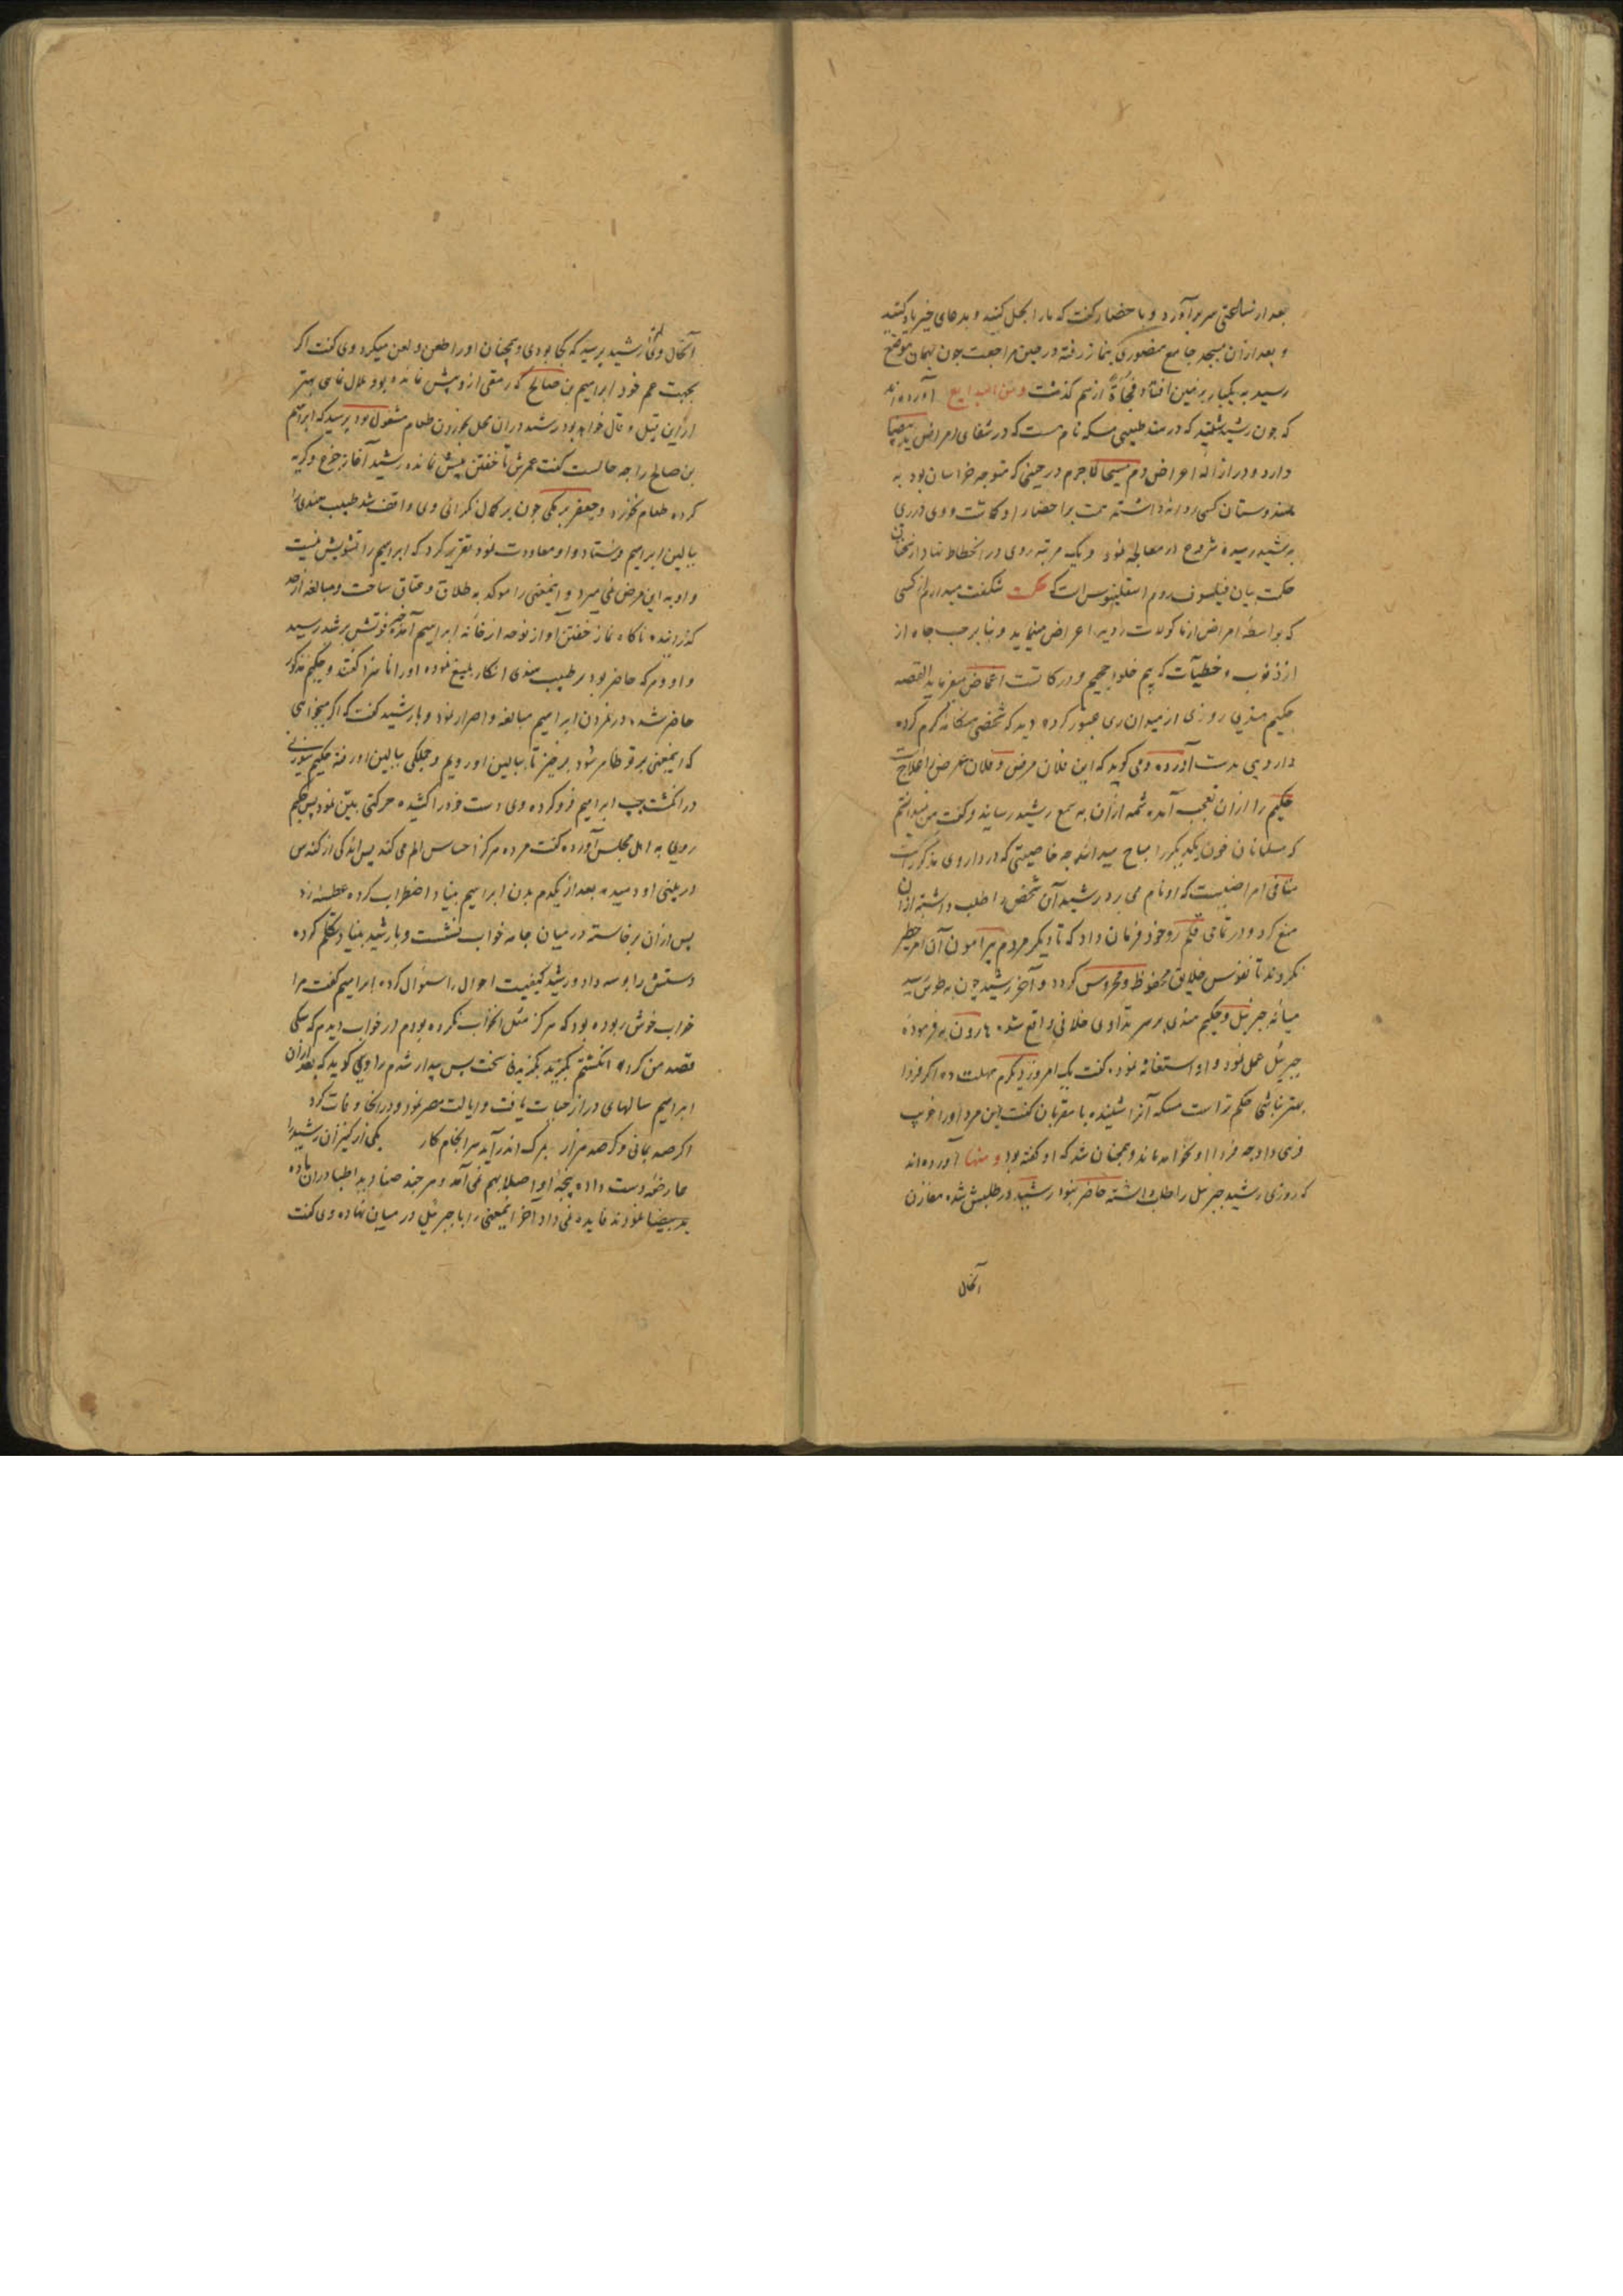 بعد از ساعتی سر برآورد و با حضار گفت که ما را بحل کنید و بدعای خیر یاد کنید
و بعد از آن بمسجد جامع منصوری بنماز رفته در حین مراجعت چون بهمان موضع
رسید به یکبار بر زمین افتاد و فجأةً از هم گذشت و من البدایع آورده‌اند
که چون رشید شنید که در هند طبیبی منکه نام هست که در شفای امراض ید بیضا
دارد و در ازاله اعراض دم مسیحا لاجرم در حینی که متوجه خراسان بود به
هندوستان کسی روانه داشته همت بر احضار او گماشت و وی در ری
به رشید رسیده شروع در معالجه نمود و یک مرتبه روی در انحطاط نهاد از سخنان
حکمت بیان فیلسوف روم اسقلینوس است که حکمت شگفت میدارم از کسی
که بواسطه امراض از ماکولات ردیه اعراض مینماید و بنا بر حب جاه از
از ذنوب و خطیآت که بیم خلود جحیم و درکاتست اغماض میفرماید القصه
حکیم هندی روزی از میدان ری عبور کرده دید که شخصی هنگامه گرم کرده
دارویی بدست آورده و می گوید که این فلان مرض و فلان عرض را علاجست
حکیم را از آن تعجب آمده شمه از آن به سمع رشید رساند و گفت من نمیدانستم
که مسلمانان خون یکدیگر را مباح میدانند چه خاصیتی که در داروی مذکور است
منافی امراضیست که او نام می برد رشید آن شخص را طلب داشته از آن
منع کرد و در تمامی قلمرو خود فرمان داد که تا دیگر مردم پیرامون آن امر خطیر
نگردند تا نفوس خلایق محفوظ و محروس گردد و آخر رشید چون به طوس رسید
میانه جبرئیل و حکیم هندی بر سر تداوی خلافی واقع شده هارون به فرموده
جبرئیل عمل نمود و او استغاثه نموده گفت یک امروز دیگرم مهلت ده اگر فردا
بهتر نباشی حکم تراست منکه آنرا شنیده با مقربان گفت این مرد او را فریب
می داد چه فردا او نخواهد ماند و همچنان شد که او گفته بود و منها آورده‌اند
که روزی رشید جبرئیل را طلب داشته حاضر نبود رشید در طلبش شده مقارن
آنحال
آنحال وی رشید پرسید که کجا بودی و همچنان او را طعن و لعن میکرد وی گفت اگر
بجهت عم خود ابراهیم بن صالح که رمقی از وی بیش نمانده بود ملال نمایی بهتر
از این قیل و قال خواهد بود رشید در آن محل بخوردن طعام مشغول بود پرسید که ابراهیم
بن صالح را چه حالست گفت عمرش تا خفتن بیش نمانده رشید آغاز جزع و گریه
کرده طعام نخورد و جعفر برمکی چون بر کمال نگرانی وی واقف شد طبیب هندی را
ببالین ابراهیم فرستاد و او معاودت نمود تقریر کرد که ابراهیم را تشویش نیست
و او به این مرض نمی میرد و اینمعنی را موکد به طلاق و عتاق ساخت و مبالغه از حد
گذرانیده ناگاه نماز خفتن آواز نوحه از خانه ابراهیم آمده خبر فوتش به رشید رسید
داود که حاضر بود بر طبیب هندی انکار بلیغ نموده او را ناسزا گفتند و حکیم مذکور
حاضر شده در نمردن ابراهیم مبالغه و اصرار نمود و با رشید گفت که اگر میخواهی
که اینمعنی بر تو ظاهر شود برخیز تا ببالین او رویم و جملگی ببالین او رفته حکیم سوزنی
در انگشت چپ ابراهیم فرو کرده وی دست خود را کشیده حرکتی بیّن نمود پس حکیم
روی به اهل مجلس آورده گفت مرده هرگز احساس الم می کند پس اندکی از کندس
در بینی او دمیده بعد از یکدم بدن ابراهیم بنیاد اضطراب کرده عطسه زد
پس از آن برخاسته در میان جامه خواب نشست و با رشید بنیاد تکلم کرده
دستش را بوسه داد و رشید کیفیت احوال را سئوال کرده ابراهیم گفت مرا
خواب خوش ربوده بود که هرگز مثل آنخواب نکرده بودم در خواب دیدم که سگی
قصد من کرده انگشتم بگزید گزیدنی سخت پس بیدار شدم راوی گوید که بعد از آن
ابراهیم سالهای دراز حیات یافت و ایالت مصر نمود و در آنجا وفات کرد
اگر صد بمانی و گر صد هزار بمرگ اندر آید سرانجام کار یکی از کنیزان رشید را
عارضه دست داده پنجه او اصلا بهم نمی آمد و هر چند صنادید اطبا در آن ماده
ید بیضا نمودند فایده نمی داد آخر اینمعنی را با جبرئیل در میان نهاده وی گفت